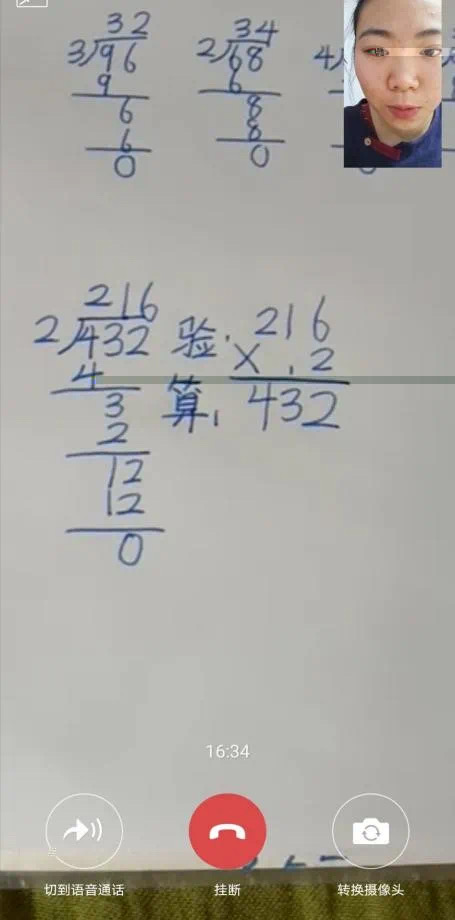 32 34
3)96 2)68 4
9 6
6 8
6 8
0 0
216
2)432 验: 216
4 × 2
3 算: 432
2
12
12
0
16:34
切到语音通话 挂断 转换摄像头